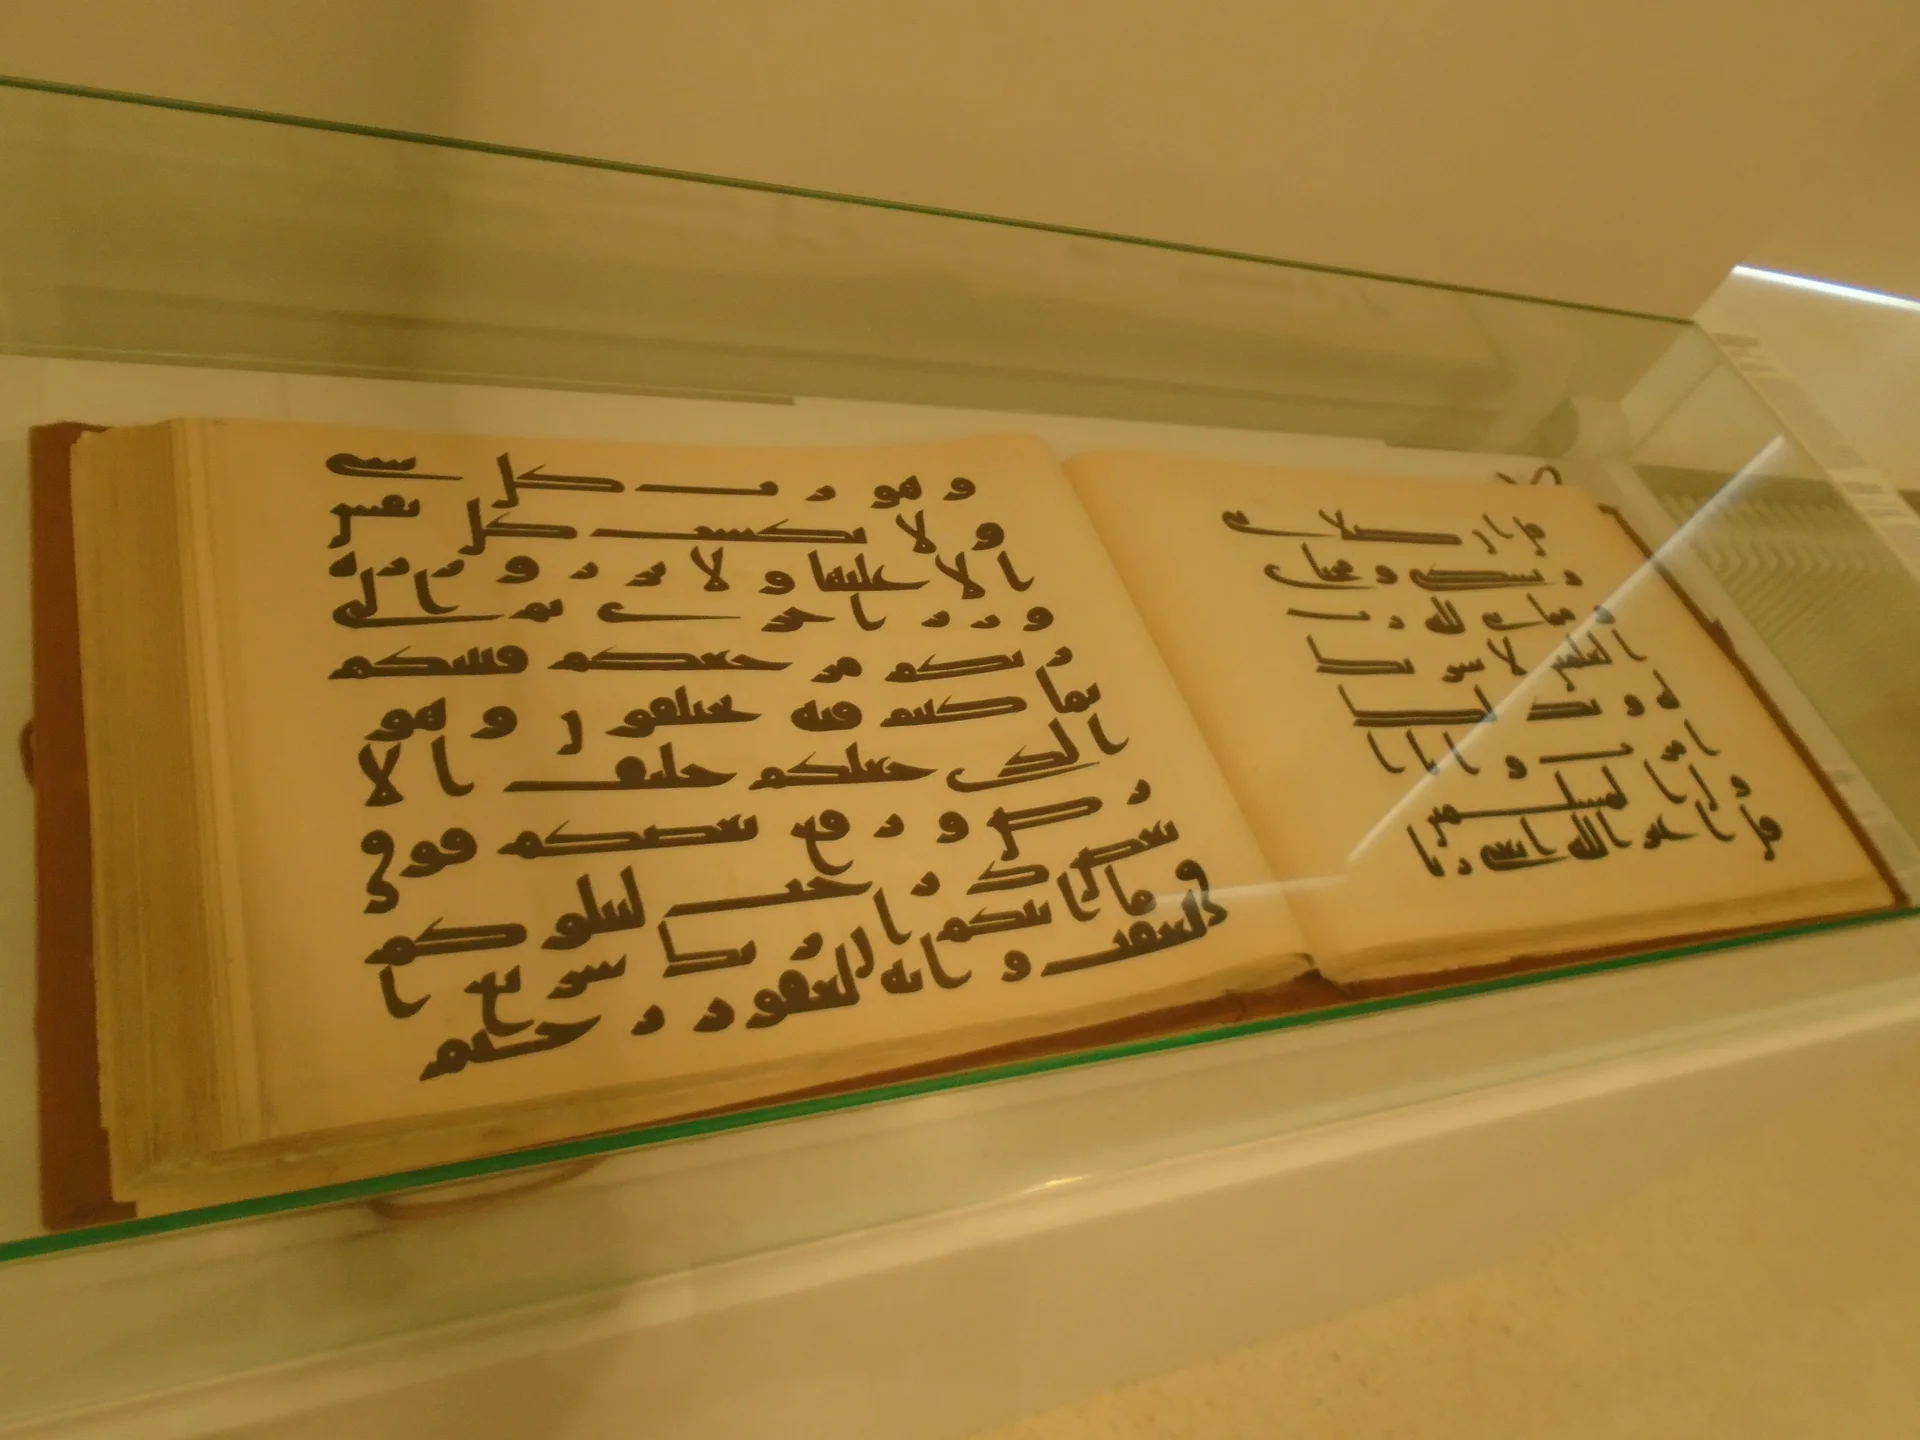 قل ان صلاتي
ونسكي ومحياي
ومماتي لله رب
العلمين لا شريك
له وبذلك
امرت وانا ا
ول المسلمين
قل اغير الله ابغي ربا
وهو رب كل شي
ولا تكسب كل نفس
الا عليها ولا تزر وازرة
وزر اخرى ثم الى
ربكم مرجعكم فينبئكم
بما كنتم فيه تختلفون وهو
الذي جعلكم خلئف الا
رض ورفع بعضكم فوق
بعض درجت ليبلوكم
في ما اتيكم ان ربك سريع ا
لعقب وانه لغفور رحيم